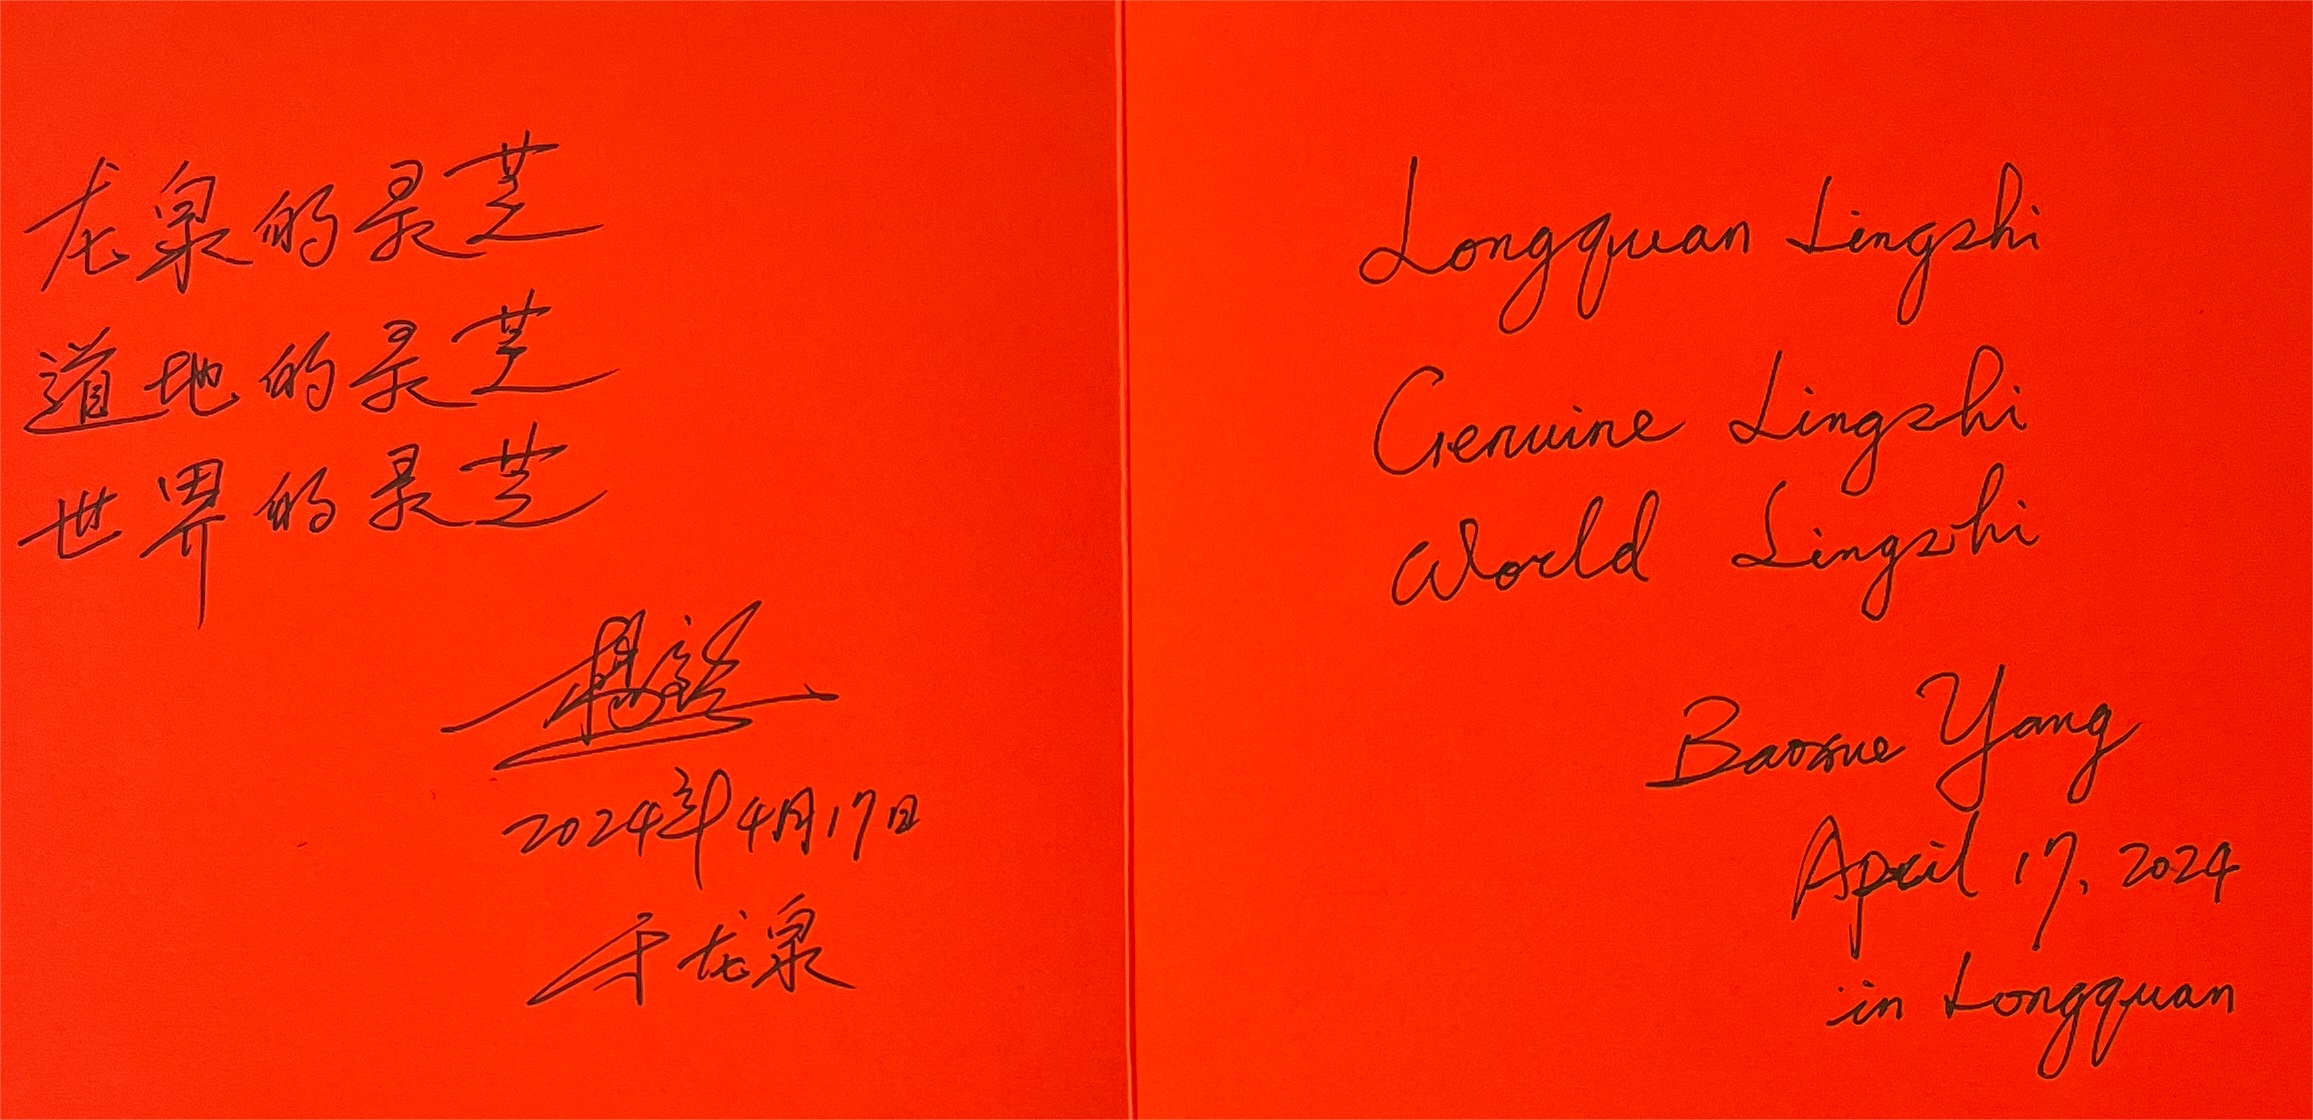 龙泉的灵芝
道地的灵芝
世界的灵芝
2024年4月17日
于龙泉
Longquan Lingzhi
Genuine Lingzhi
World Lingzhi
Baoxue Yang
April 17, 2024
in Longquan